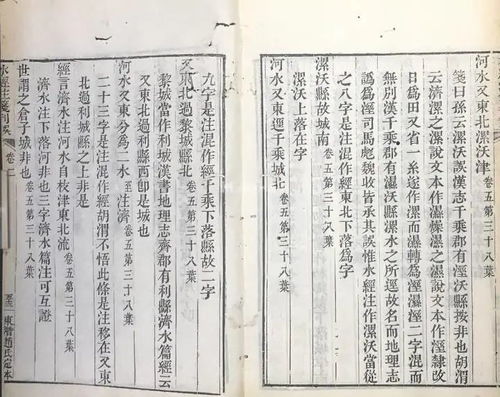 河水又東北漯沃津 卷五第三十八葉
箋曰孫云漯沃誤漢志千乘郡有溼沃縣按非也胡渭
云濟漯之漯說文本作濕燥濕之濕說文本作溼隸改
日為田又省一糸遂作漯而濕轉為溼濕溼二字混而
無別漢千乘郡有濕沃縣漯水之所逕故名而地理志
譌為溼司馬彪魏收皆承其誤惟水經注作漯沃當從
之八字是注混作經東北下落為字
漯沃縣故城南 卷五第三十八葉
漯沃上落在字
河水又東逕千乘城北 卷五第三十八葉
九字是注混作經千乘下落縣故二字
又東北過黎城縣北 卷五第三十八葉
黎城當作利城漢書地理志齊郡有利縣濟水篇經云
又東北過利縣西卽是城也
河水又東分為二水 至注濟 卷五第三十八葉
二十三字是注混作經胡渭不悟此條是注移在又東
北過利城縣之上非是
經言濟水注河水自枝津東北流 卷五第三十八葉
濟水注下落河非也三字濟水篇注可互證
世謂之倉子城非也 卷五第三十八葉
水經注箋刊誤 卷二 東潛趙氏定本